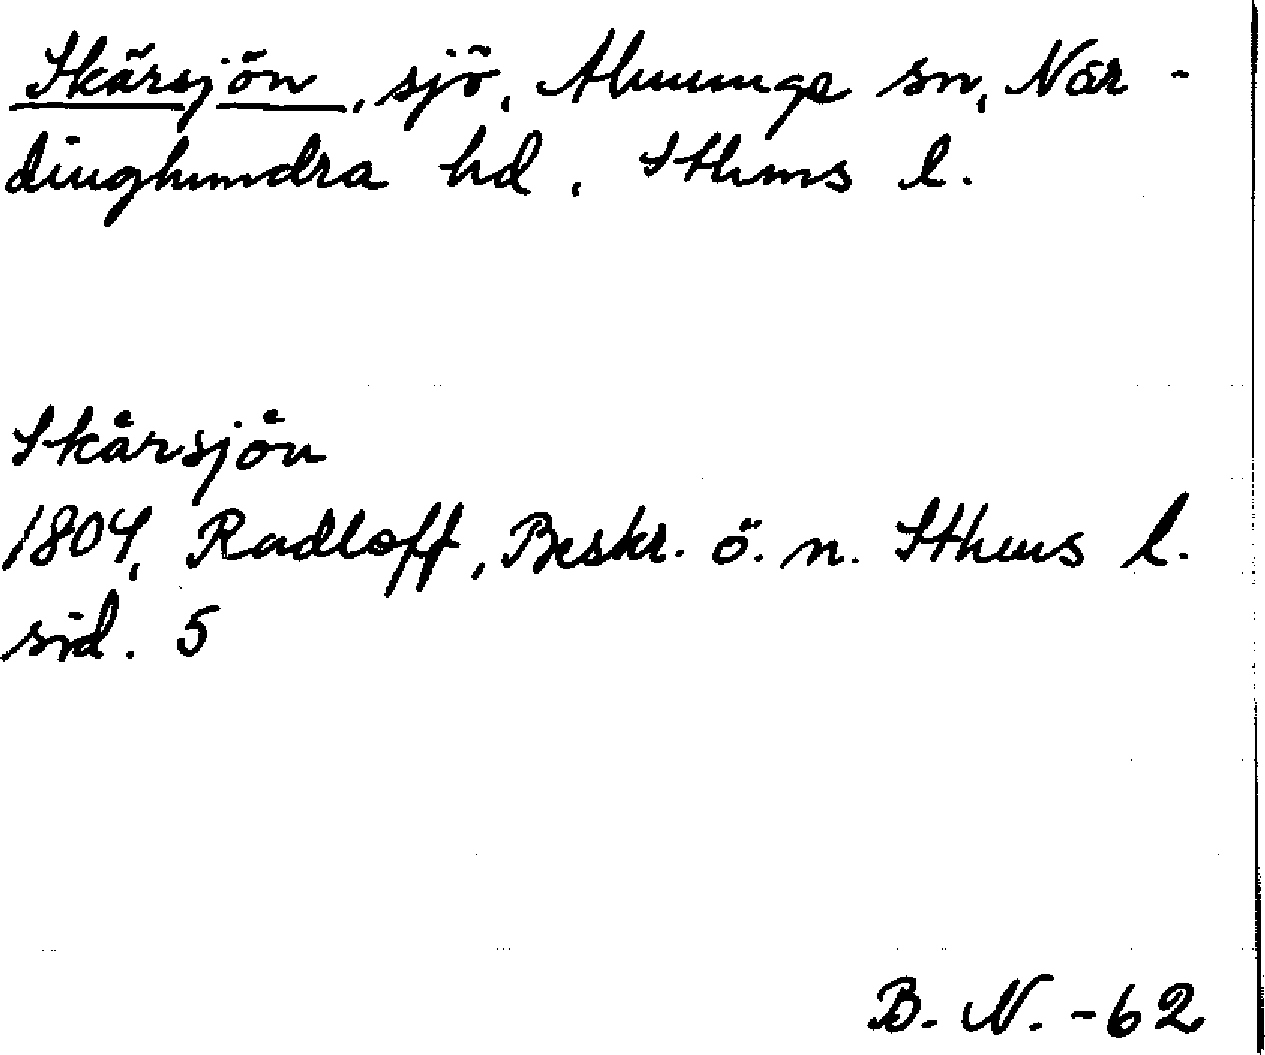 Skärsjön, sjö, Almunge sn, När-
dinghundra hd, Sthms l.
Skårsjön
1804, Radloff, Beskr. ö. n. Sthms l.
sid. 5
B. N. -62